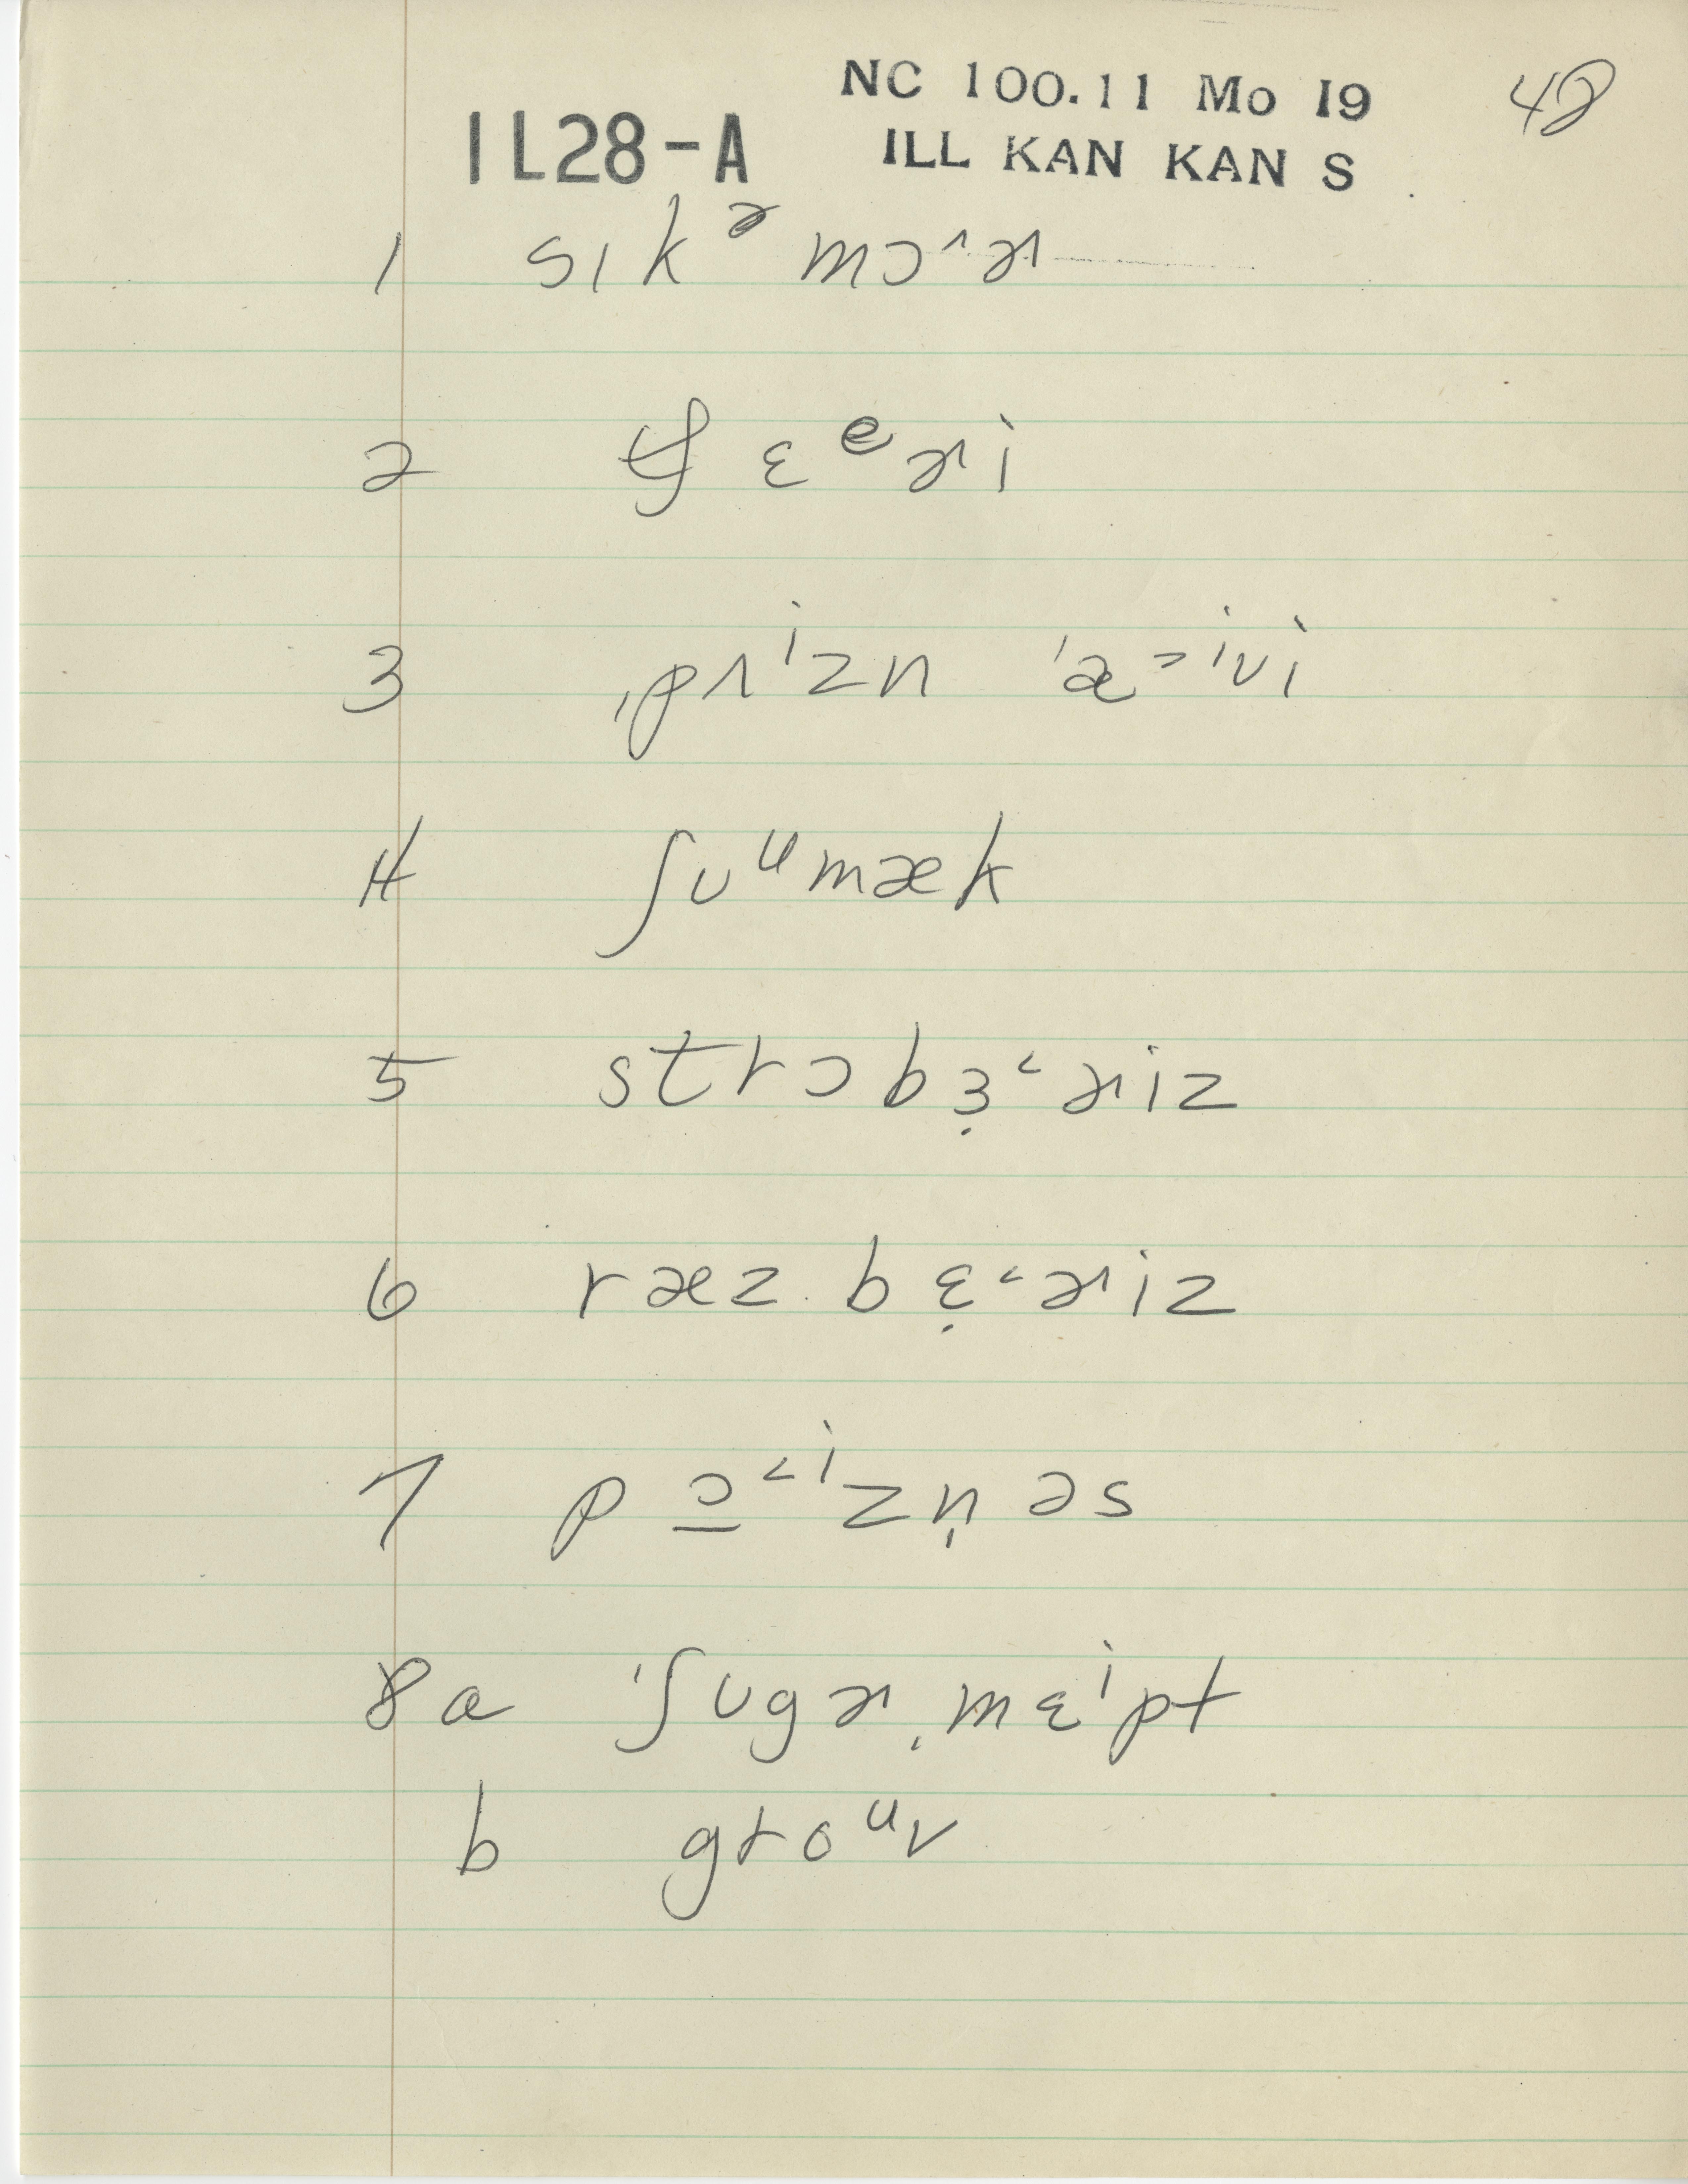 NC 100.11 Mo I9 48
1L28-A ILL KAN KAN S
1 sɪkᵊmɔ˄ɚ
2 tʃɛᵉɚi
3 ˌpʌⁱzn ˈæ˃ⁱvi
4 ʃʊᵘmæk
5 strɔbɛ̣˂ɚiz
6 ræz bɛ̣˂ɚiz
7 pɔ̠˂ⁱzn̩əs
8a ˈʃʊgɚˌmɛⁱpt
b groᵘv